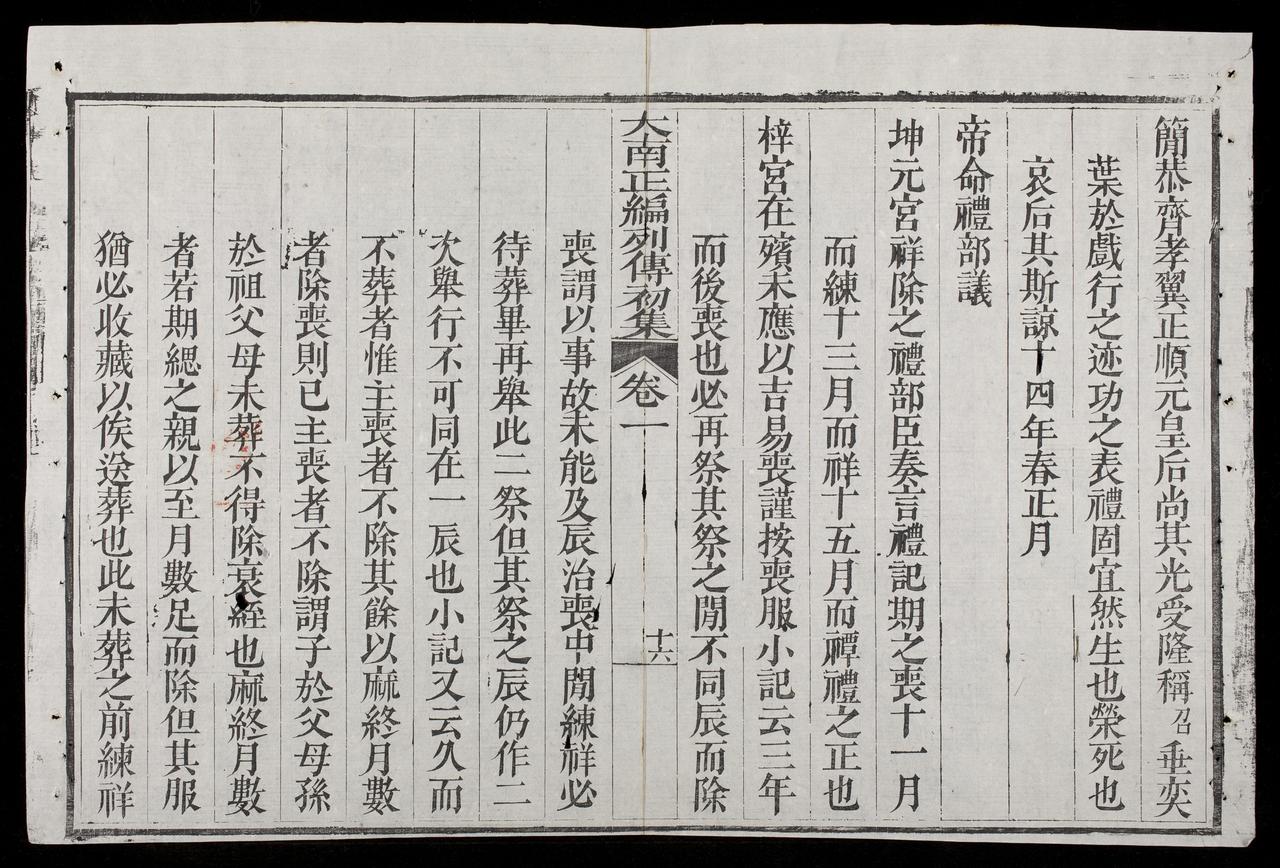 簡恭齊孝翼正順元皇后尚其光受隆稱召垂奕
葉於戲行之迹功之表禮固宜然生也榮死也
哀后其斯諒十四年春正月
帝命禮部議
坤元宮祥除之禮部臣奏言禮記期之喪十一月
而練十三月而祥十五月而禫禮之正也
梓宮在殯未應以吉易喪謹按喪服小記云三年
而後喪也必再祭其祭之閒不同辰而除
大南正編列傳初集 卷一 十六
喪謂以事故未能及辰治喪中閒練祥必
待葬畢再舉此二祭但其祭之辰仍作二
次舉行不可同在一辰也小記又云久而
不葬者惟主喪者不除其餘以麻終月數
者除喪則已主喪者不除謂子於父母孫
於祖父母未葬不得除衰絰也麻終月數
者若期緦之親以至月數足而除但其服
猶必收藏以俟送葬也此未葬之前練祥